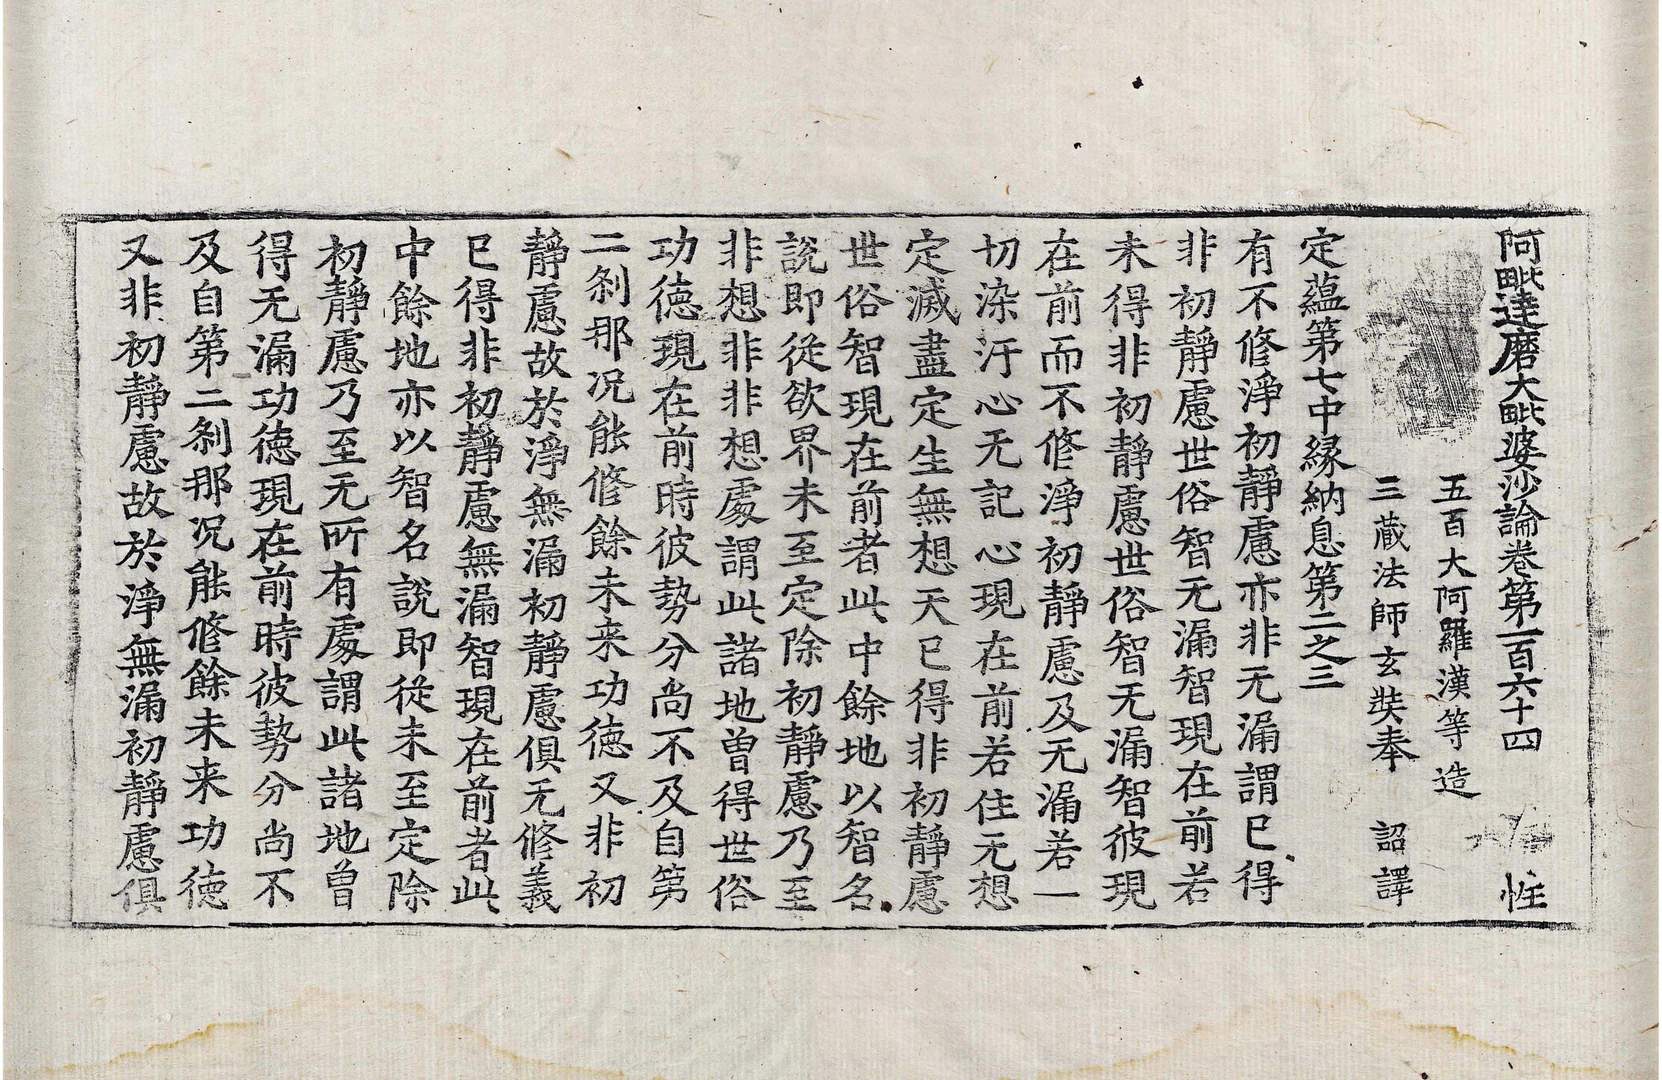 阿毗達磨大毗婆沙論卷第一百六十四 性
五百大阿羅漢等造
三藏法師玄奘奉 詔譯
定蘊第七中緣納息第二之三
有不修淨初靜慮亦非无漏謂已得
非初靜慮世俗智无漏智現在前若
未得非初靜慮世俗智无漏智彼現
在前而不修淨初靜慮及无漏若一
切染汙心无記心現在前若住无想
定滅盡定生無想天已得非初靜慮
世俗智現在前者此中餘地以智名
說即從欲界未至定除初靜慮乃至
非想非非想處謂此諸地曾得世俗
功德現在前時彼勢分尚不及自第
二剎那況能修餘未来功德又非初
靜慮故於淨無漏初靜慮俱无修義
已得非初靜慮無漏智現在前者此
中餘地亦以智名說即從未至定除
初靜慮乃至无所有處謂此諸地曾
得无漏功德現在前時彼勢分尚不
及自第二剎那況能修餘未来功德
又非初靜慮故於淨無漏初靜慮俱